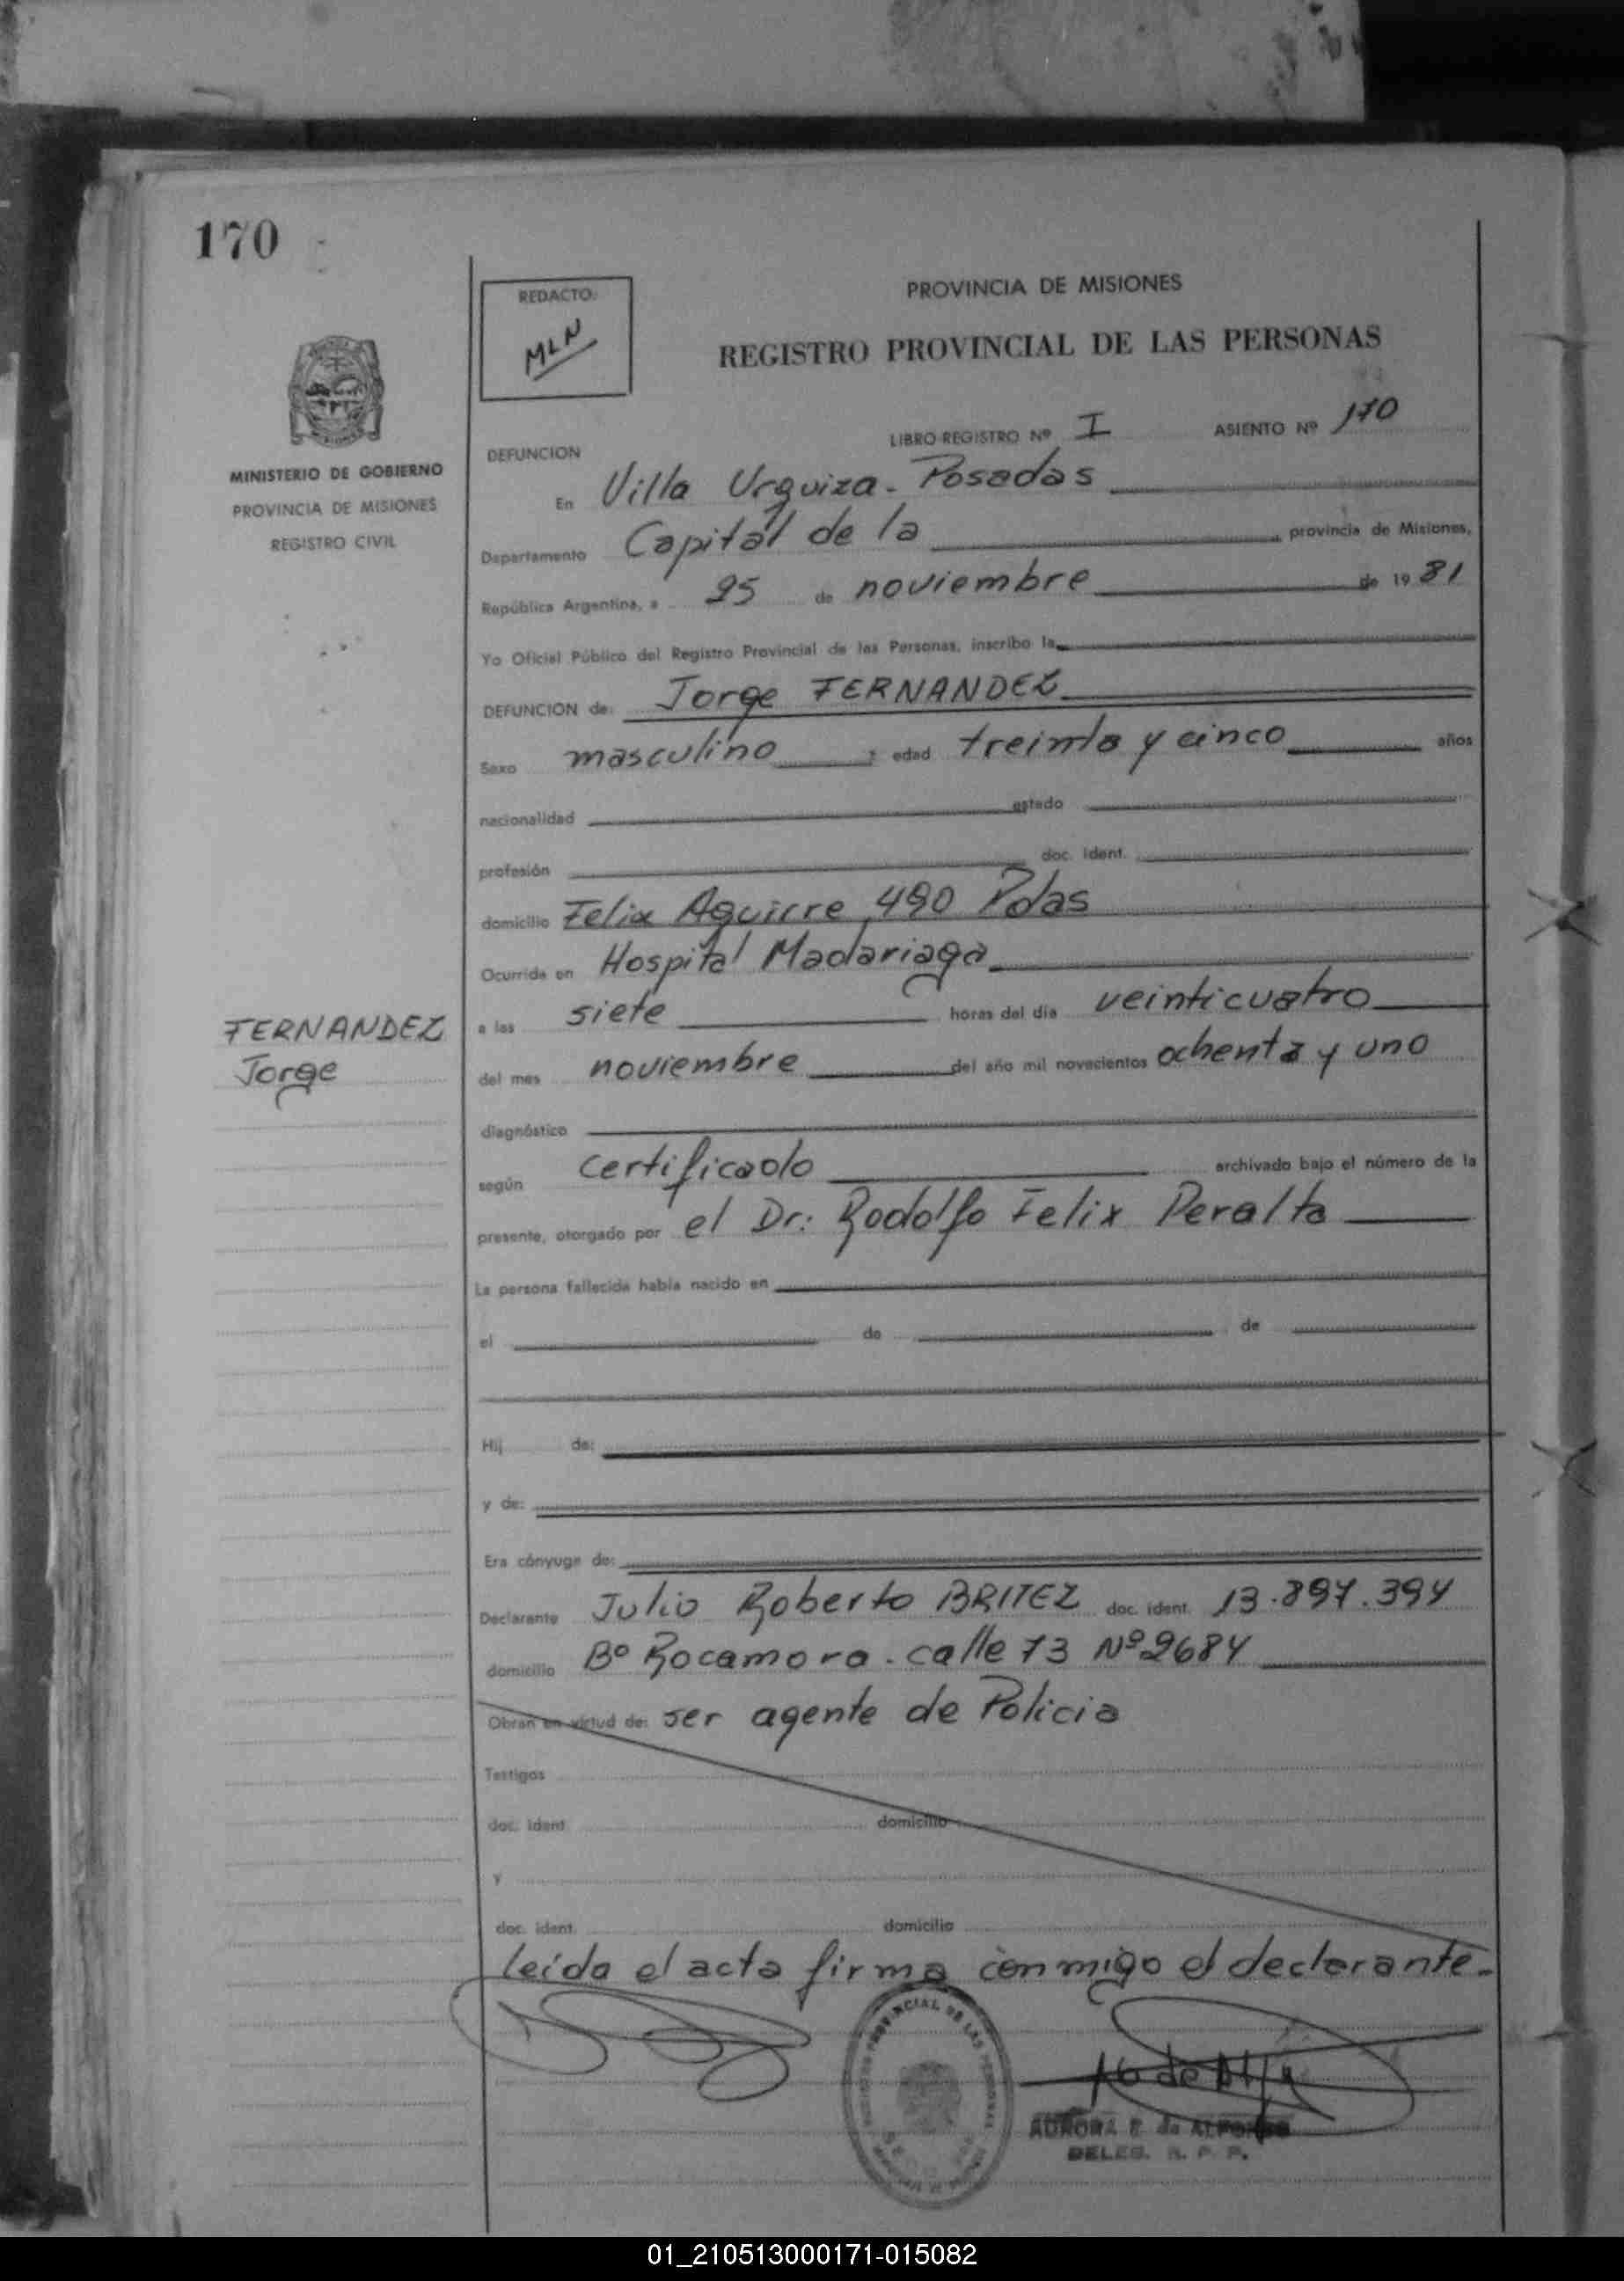 170
REDACTO:
MLN
PROVINCIA DE MISIONES
REGISTRO PROVINCIAL DE LAS PERSONAS
MINISTERIO DE GOBIERNO
PROVINCIA DE MISIONES
REGISTRO CIVIL
LIBRO REGISTRO Nº I ASIENTO Nº 170
DEFUNCION
En Villa Urquiza - Posadas
Departamento Capital de la provincia de Misiones,
República Argentina, a 25 de noviembre de 19 81
Yo Oficial Público del Registro Provincial de las Personas, inscribo la
DEFUNCION de: Jorge FERNANDEZ
Sexo masculino ; edad treinta y cinco años
nacionalidad estado
profesión doc. ident.
domicilio Felix Aguirre 490 Pdas
Ocurrida en Hospital Madariaga
a las siete horas del día veinticuatro
FERNANDEZ
Jorge
del mes noviembre del año mil novecientos ochenta y uno
diagnóstico
según certificado archivado bajo el número de la
presente, otorgado por el Dr: Rodolfo Felix Peralta
La persona fallecida había nacido en
el de de
Hij de:
y de:
Era cónyuge de:
Declarante Julio Roberto BRITEZ doc. ident. 13.897.394
domicilio Bº Rocamora - calle 73 Nº 2684
Obran en virtud de: ser agente de Policia
Testigos
doc. ident. domicilio
y
doc. ident. domicilio
leída el acta firma conmigo el declarante.
AURORA E. de
DELEG. R. P. P.
01_210513000171-015082